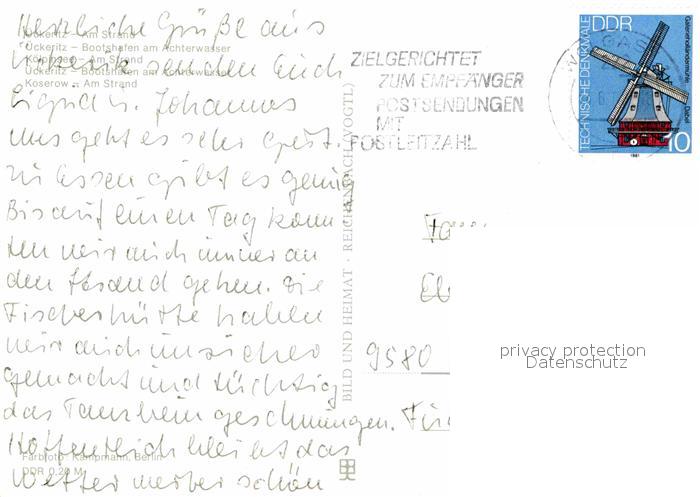 Herzliche Grüße aus
Ückeritz senden Euch
Sigrid u. Johannes
uns geht es sehr gut.
zu Essen gibt es genug
Bis auf einen Tag konn
ten wir auch immer an
den Strand gehen. Die
Fischerhütte haben
wir auch unsicher
gemacht und tüchtig
das Tanzbein geschwungen.
Hoffentlich bleibt das
Wetter weiter schön
Ückeritz – Am Strand
Ückeritz – Bootshafen am Achterwasser
Kölpinsee – Am Strand
Ückeritz – Bootshafen am Achterwasser
Koserow – Am Strand
Farbfoto: Kampmann, Berlin
DDR 0,20 M
BILD UND HEIMAT · REICHENBACH (VOGTL)
ZIELGERICHTET
ZUM EMPFÄNGER
POSTSENDUNGEN
MIT
POSTLEITZAHL
DDR
TECHNISCHE DENKMALE
10
1981
9580
privacy protection
Datenschutz